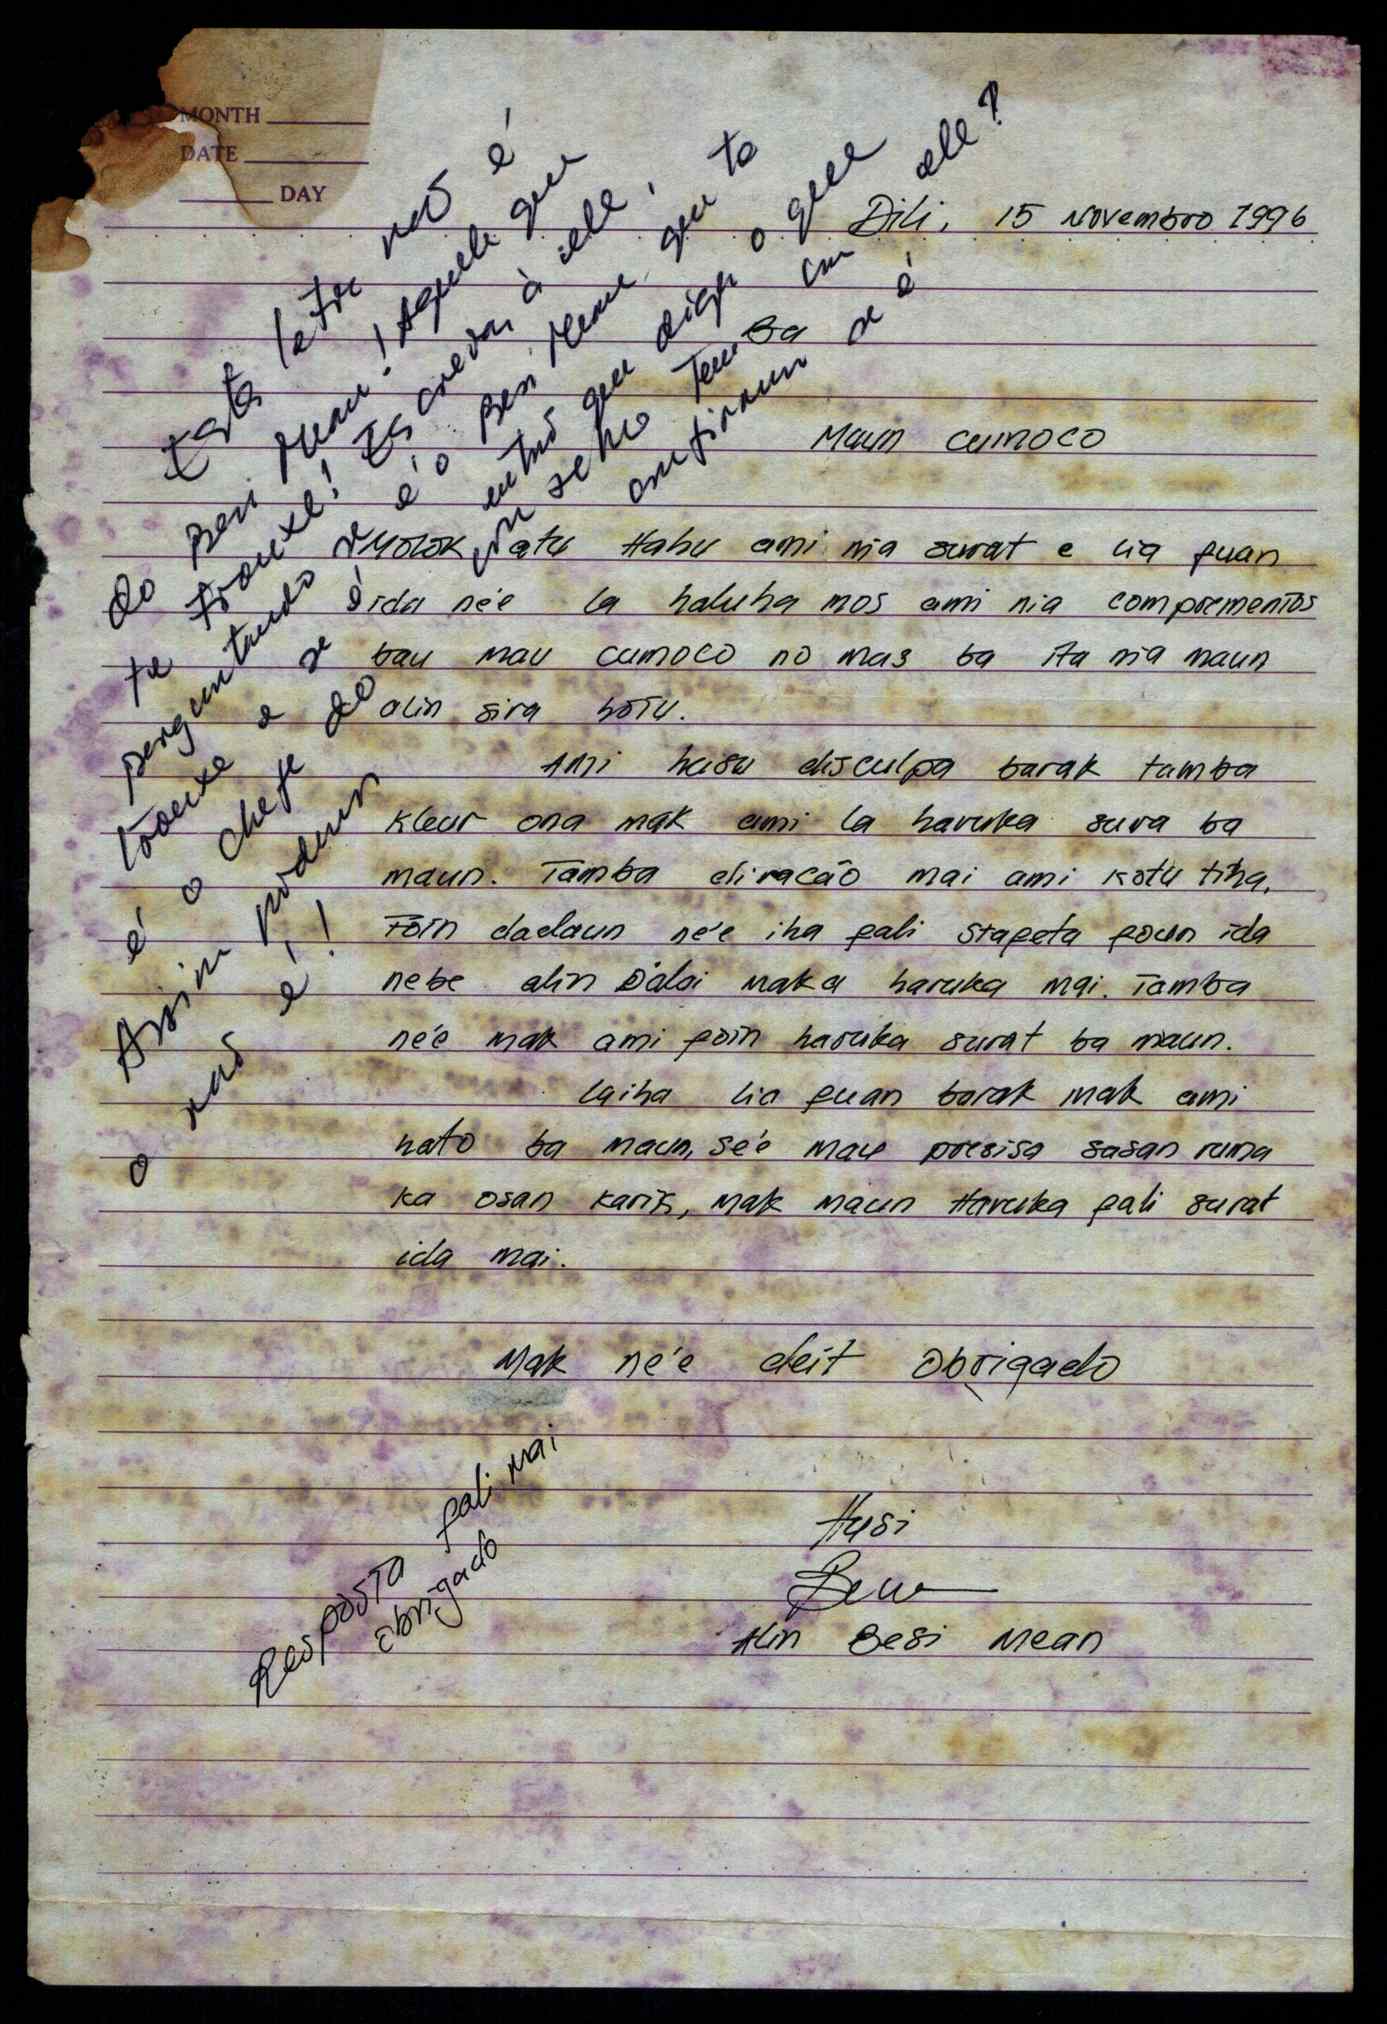 MONTH
DATE
DAY
Dili, 15 Novembro 1996
Ba
Maun cumoco
Molok atu Hahu ami nia surat e lia fuan
ida ne'e la haluha mos ami nia comprementos
bau mau cumoco no mas ba ita nia maun
alin sira hotu.
Ami husu disculpa barak tamba
kleur ona mak ami la haruka sura ba
maun. Tamba eliracão mai ami kotu tiha,
Foin dadaun ne'e iha fali stafeta foun ida
nebe alin Dalai maka haruka mai. Tamba
ne'e mak ami foin haruka surat ba maun.
Laiha lia fuan barak mak ami
hato ba maun, se'e mau presisa sasan ruma
ka osan karik, mak maun Haruka fali surat
ida mai.
Mak ne'e deit obrigado
Husi
Alin Besi Mean
Resposta fali mai
obrigado
Esta letra não é
do Besi Mean! Aquele que
te trouxe! Escreva, à ele,
perguntando se é o Besi Mean, que to
trouxe e se é outro que diga o que
é o chefe do conselho Tem com ele?
Assim podemos confirmar se é
o não é!